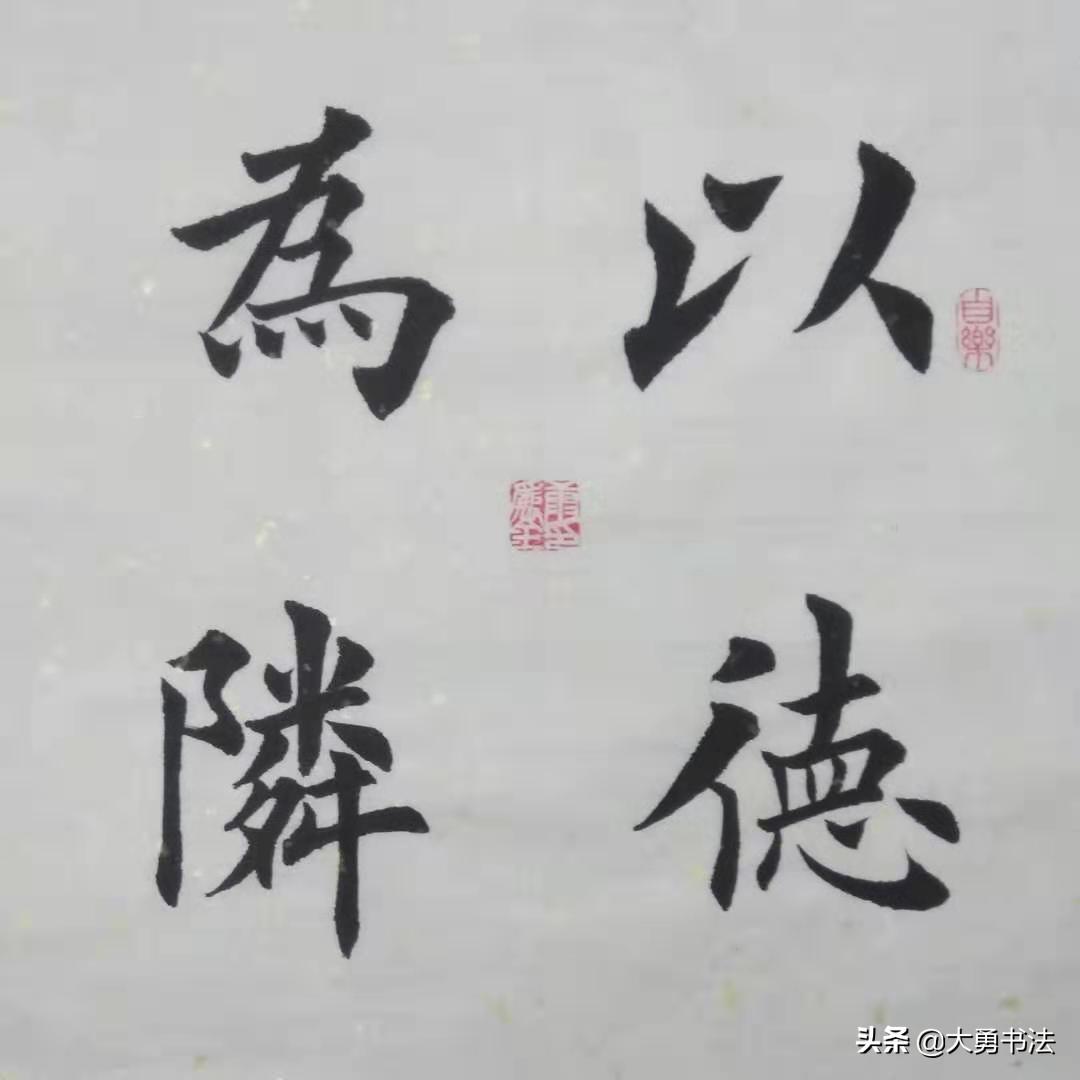 以德
為隣
百樂
头条 @大勇书法